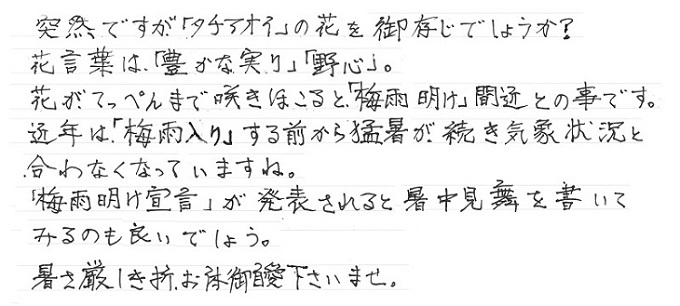 突然、ですが「タチアオイ」の花を御存じでしょうか？
花言葉は、「豊かな実り」「野心」。
花がてっぺんまで咲きほこると、「梅雨明け」間近との事です。
近年は、「梅雨入り」する前から猛暑が続き気象状況と
合わなくなっていますね。
「梅雨明け宣言」が発表されると暑中見舞を書いて
みるのも良いでしょう。
暑さ厳しき折、お体御自愛下さいませ。